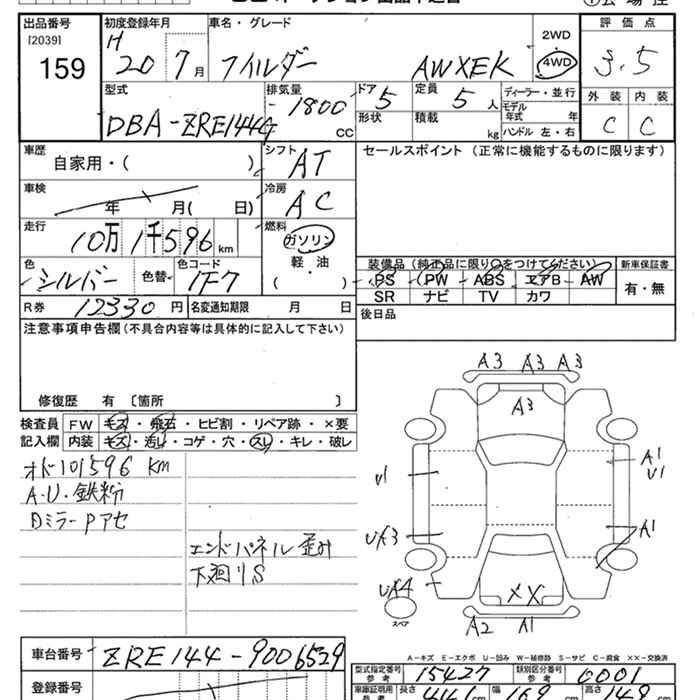 出品番号 初度登録年月 車名・グレード 2WD 4WD 評価点
[2039] H 20 7月 フィルダー AWXEK 3.5
159
型式 排気量 ドア 定員 ディーラー・並行 外装 内装
DBA-ZRE144G 1800cc 5 5人 モデル年式 年 C C
形状 積載 kg ハンドル 左・右
車歴 自家用・( ) シフト AT セールスポイント (正常に機能するものに限ります)
車検 年 月( 日) 冷房 AC
走行 10万1千596km 燃料 ガソリン 軽・油 ( )
色 シルバー 色替 色コード 1F7
装備品 (純正品に限り○をつけてください) 新車保証書
PS PW ABS エアB AW 有・無
SR ナビ TV カワ
R券 12330円 名変通知期限 月 日 後日品
注意事項申告欄 (不具合内容等は具体的に記入して下さい)
修復歴 有 〔箇所 〕
検査員 FW キズ・飛石・ヒビ割・リペア跡・×要
記入欄 内装 キズ・汚れ・コゲ・穴・スレ・キレ・破レ
オド101596km
A.U.鉄粉
DミラーPアセ
エンドパネル歪み
下廻りS
A3 A3 A3
A3
U1
A1
U1
UA3
A1
UA4
XX
スペア
A2 A1
A-キズ E-エクボ U-凹み W-補修跡 S-サビ C-腐食 ××-交換済
車台番号 ZRE144-9006529
型式指定番号 参考 15427 類別区分番号 参考 0001
登録番号
車庫証明用 参考 長さ 幅 高さ